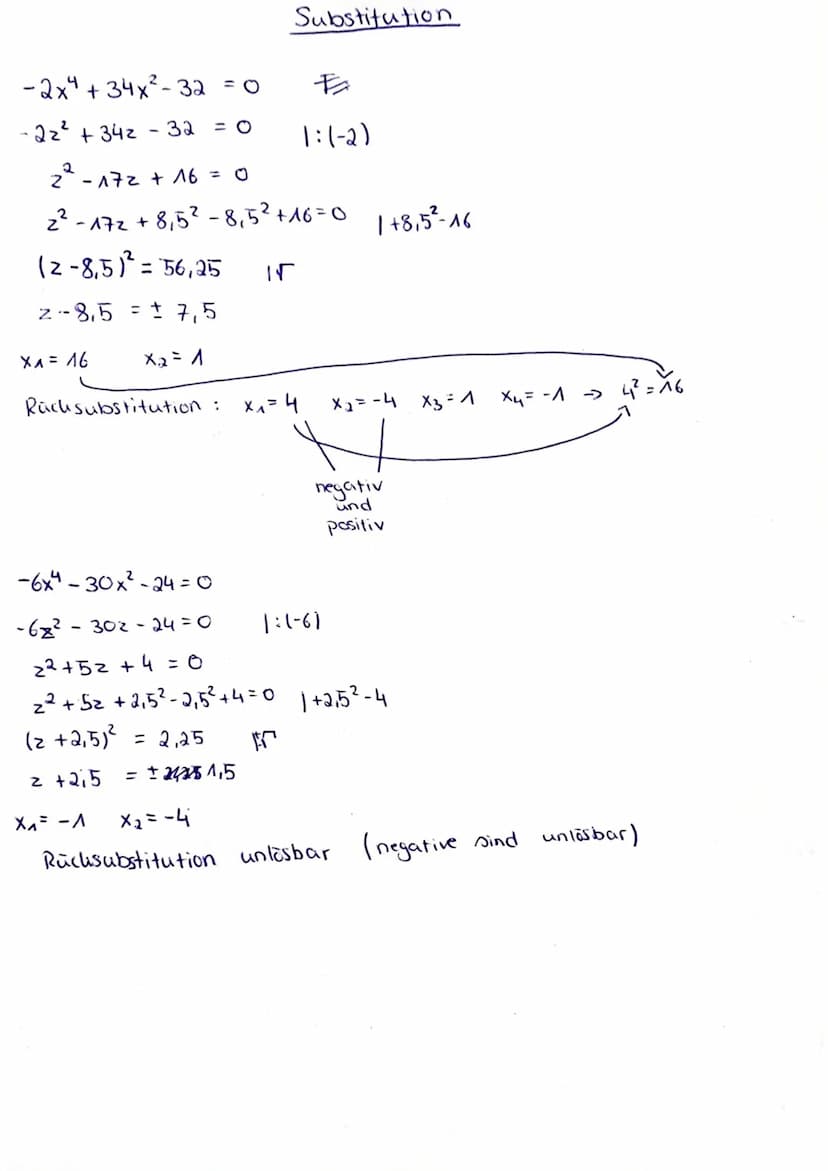 Substitution
-2x⁴ + 34x² - 32 = 0
-2z² + 34z - 32 = 0 |:(-2)
z² - 17z + 16 = 0
z² - 17z + 8,5² - 8,5² + 16 = 0 |+8,5² - 16
(z - 8,5)² = 56,25 |√
z - 8,5 = ± 7,5
x₁ = 16 x₂ = 1
Rücksubstitution : x₁ = 4 x₂ = -4 x₃ = 1 x₄ = -1 → 4² = 16
negativ
und
positiv
-6x⁴ - 30x² - 24 = 0
-6z² - 30z - 24 = 0 |:(-6)
z² + 5z + 4 = 0
z² + 5z + 2,5² - 2,5² + 4 = 0 |+2,5² - 4
(z + 2,5)² = 2,25 |√
z + 2,5 = ± 1,5
x₁ = -1 x₂ = -4
Rücksubstitution unlösbar (negative sind unlösbar)